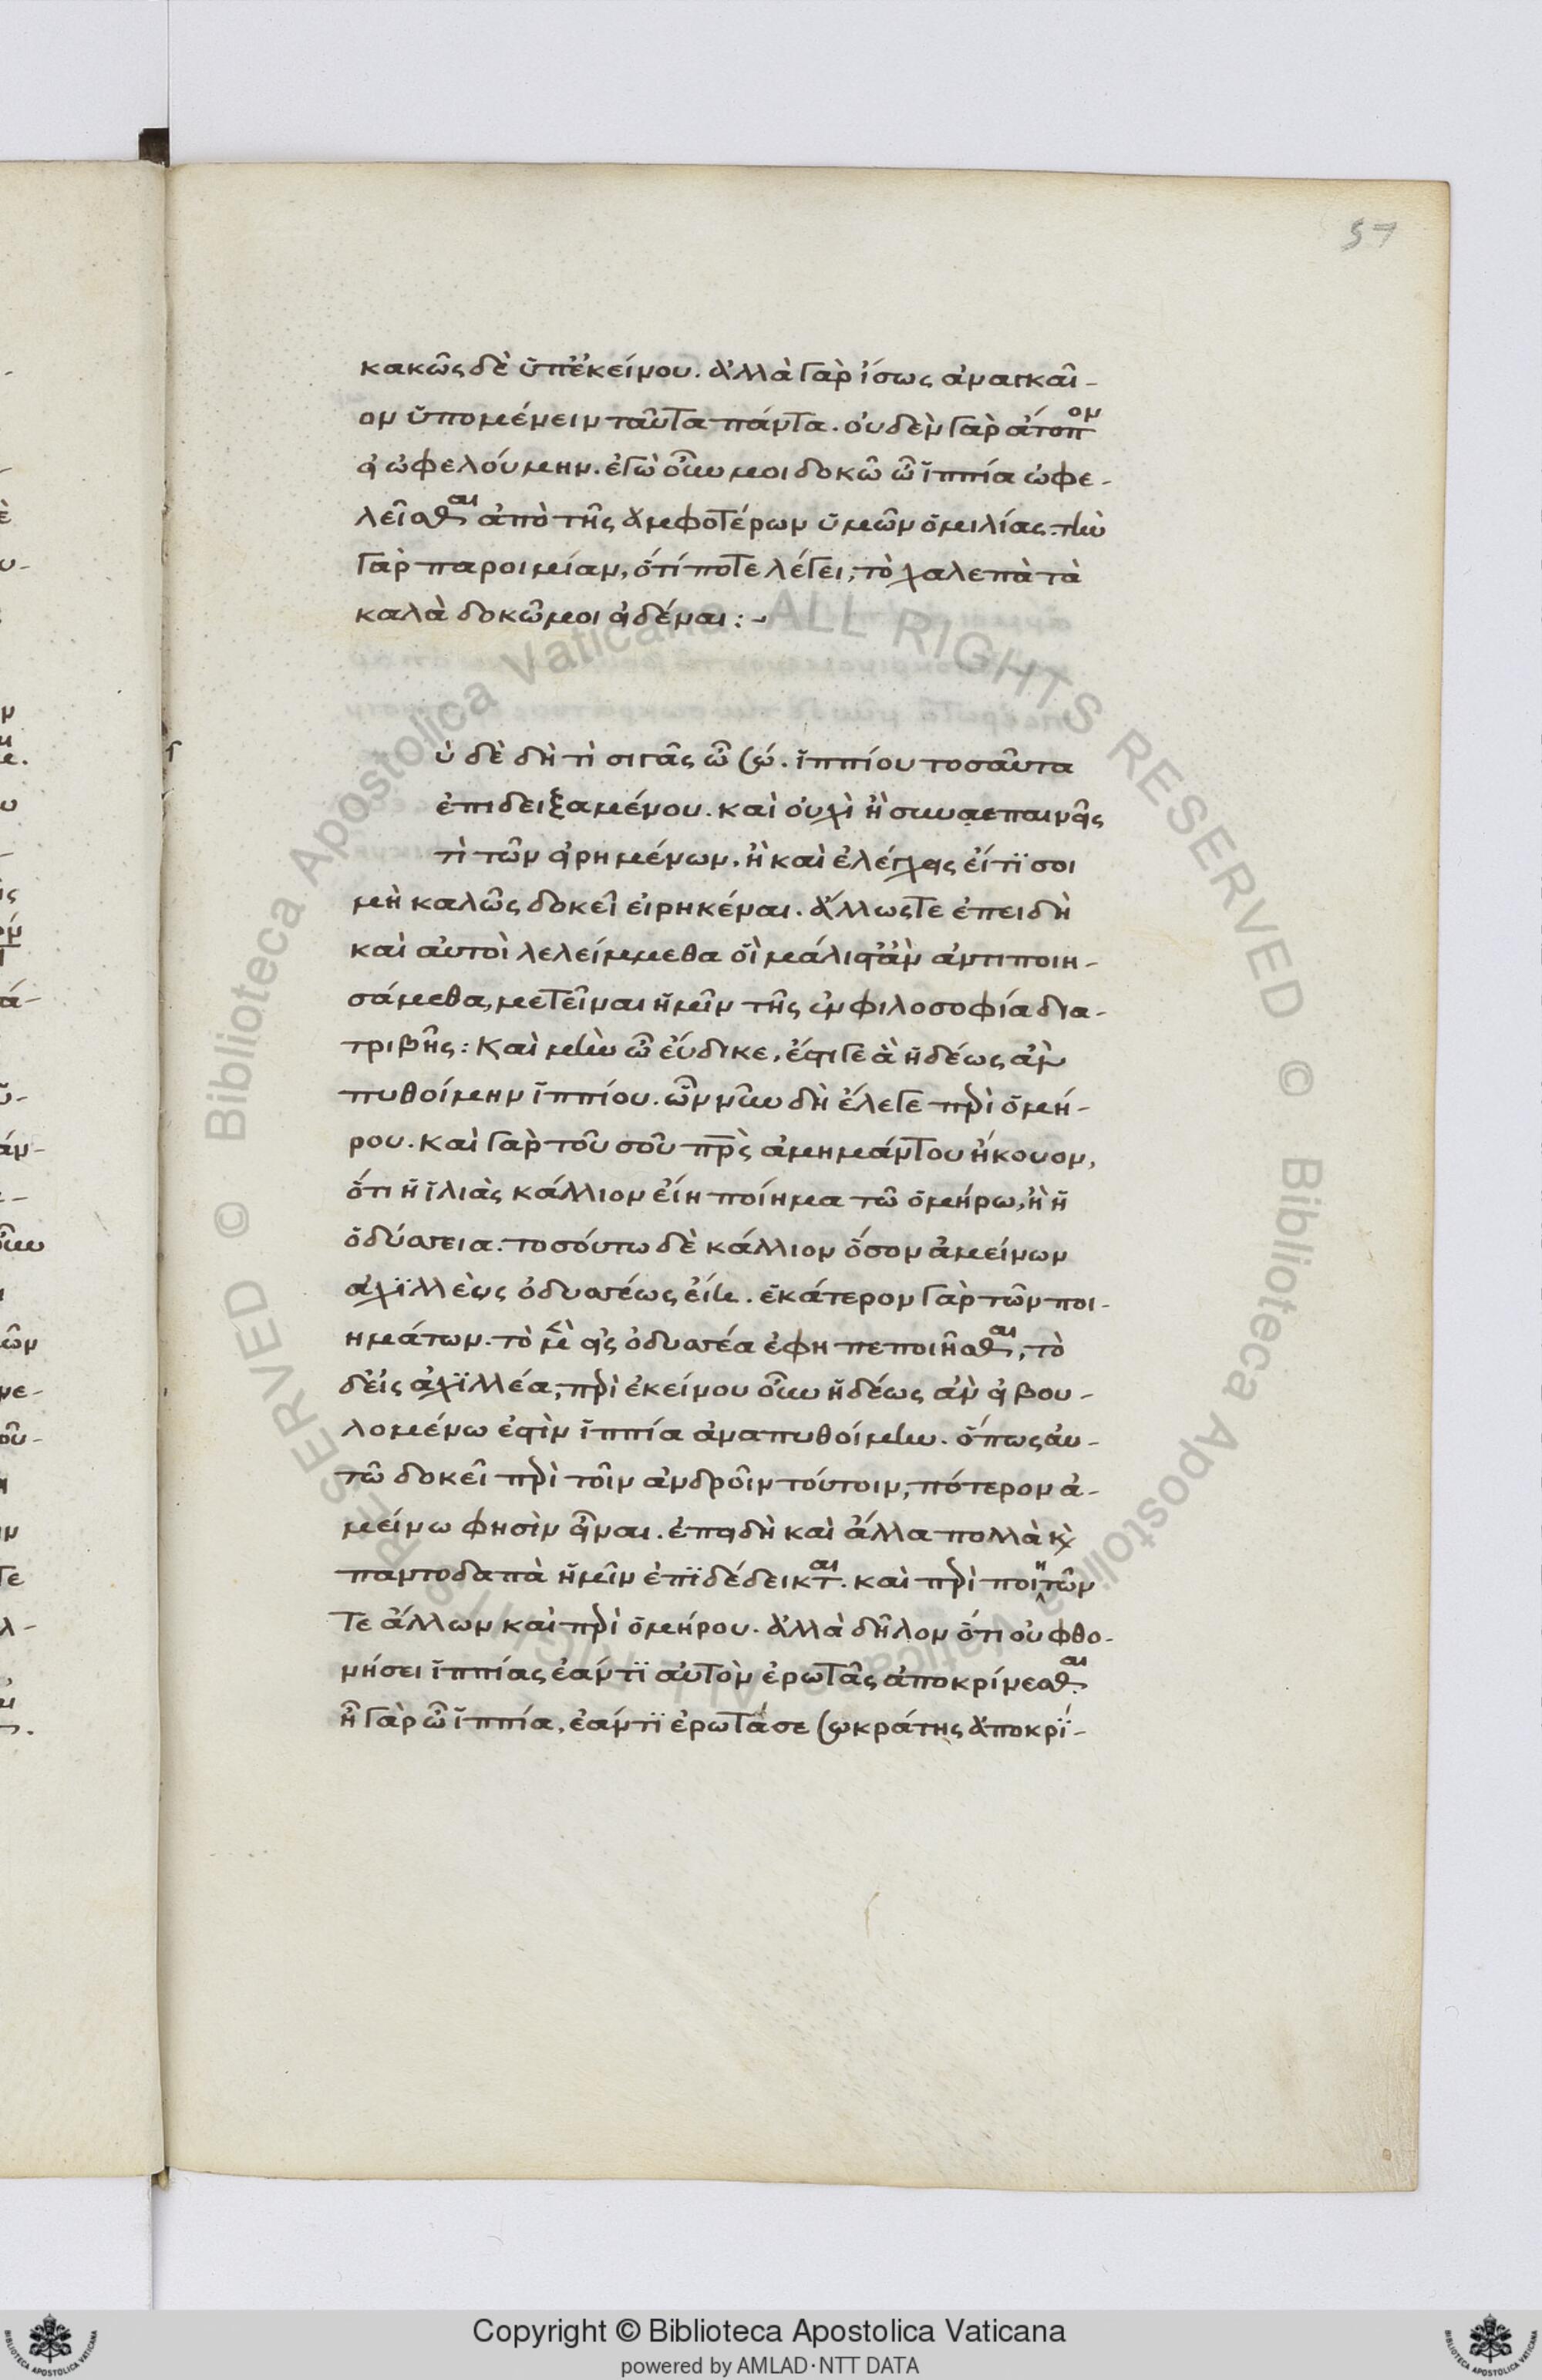 57
κακῶς δὲ ὑπ' ἐκείνου. ἀλλὰ γὰρ ἴσως ἀναγκαῖ-
ον ὑπομένειν ταῦτα πάντα. οὐδὲν γὰρ ἄτοπον
εἰ ὠφελοίμην. ἐγὼ οὖν μοι δοκῶ ὦ ἱππία ὠφε-
λεῖσθαι ἀπὸ τῆς ἀμφοτέρων ὑμῶν ὁμιλίας. τὴν
γὰρ παροιμίαν, ὅτί ποτε λέγει, τὸ χαλεπὰ τὰ
καλὰ δοκῶ μοι εἰδέναι :-
ὺ δὲ δὴ τὶ σιγᾶς ὦ σώ. ἱππίου τοσαῦτα
ἐπιδειξαμένου. καὶ οὐχὶ ἢ συναεπαινεῖς
τὶ τῶν εἰρημένων. ἢ καὶ ἐλέγχεις εἴ τί σοι
μὴ καλῶς δοκεῖ εἰρηκέναι. ἄλλως τε ἐπειδὴ
καὶ αὐτοὶ λελείμμεθα οἳ μάλιστ' ἂν ἀντιποιη-
σάμεθα, μετεῖναι ἡμῖν τῆς ἐν φιλοσοφία δια-
τριβῆς : Καὶ μὴν ὦ εὔδικε, ἔστι γε ἃ ἡδέως ἂν
πυθοίμην ἱππίου. ὧν νῦν δὴ ἔλεγε περὶ ὁμή-
ρου. καὶ γὰρ τοῦ σοῦ πρς ἀπημάντου ἤκουον,
ὅτι ἡ ἰλιὰς κάλλιον εἴη ποίημα τῶ ὁμήρω, ἢ ἡ
ὀδύσσεια. τοσούτω δὲ κάλλιον ὅσον ἀμείνων
ἀχιλλεὺς ὀδυσσέως εἴη. ἑκάτερον γὰρ τῶν ποι-
ημάτων. τὸ μὲν εἰς ὀδυσσέα ἔφη πεποιῆσθαι, τὸ
δ' εἰς ἀχιλλέα, περὶ ἐκείνου οὖν ἡδέως ἂν εἰ βου-
λομένω ἐστὶν ἱππία ἀναπυθοίμην. ὅπως αὐ-
τῶ δοκεῖ περὶ τοῖν ἀνδροῖν τούτοιν, πότερον ἀ-
μείνω φησὶν εἶναι. ἐπειδὴ καὶ ἄλλα πολλὰ κὶ
παντοδαπὰ ἡμῖν ἐπιδέδεικται. καὶ περὶ ποιητῶν
τε ἄλλων καὶ περὶ ὁμήρου. ἀλλὰ δῆλον ὅτι οὐ φθο-
νήσει ἱππίας ἐάν τι αὐτὸν ἐρωτᾶς ἀποκρίνεσθαι.
ἦ γὰρ ὦ ἱππία, ἐάν τι ἐρωτά σε σωκράτης ἀποκρί-
Copyright © Biblioteca Apostolica Vaticana
powered by AMLAD·NTT DATA